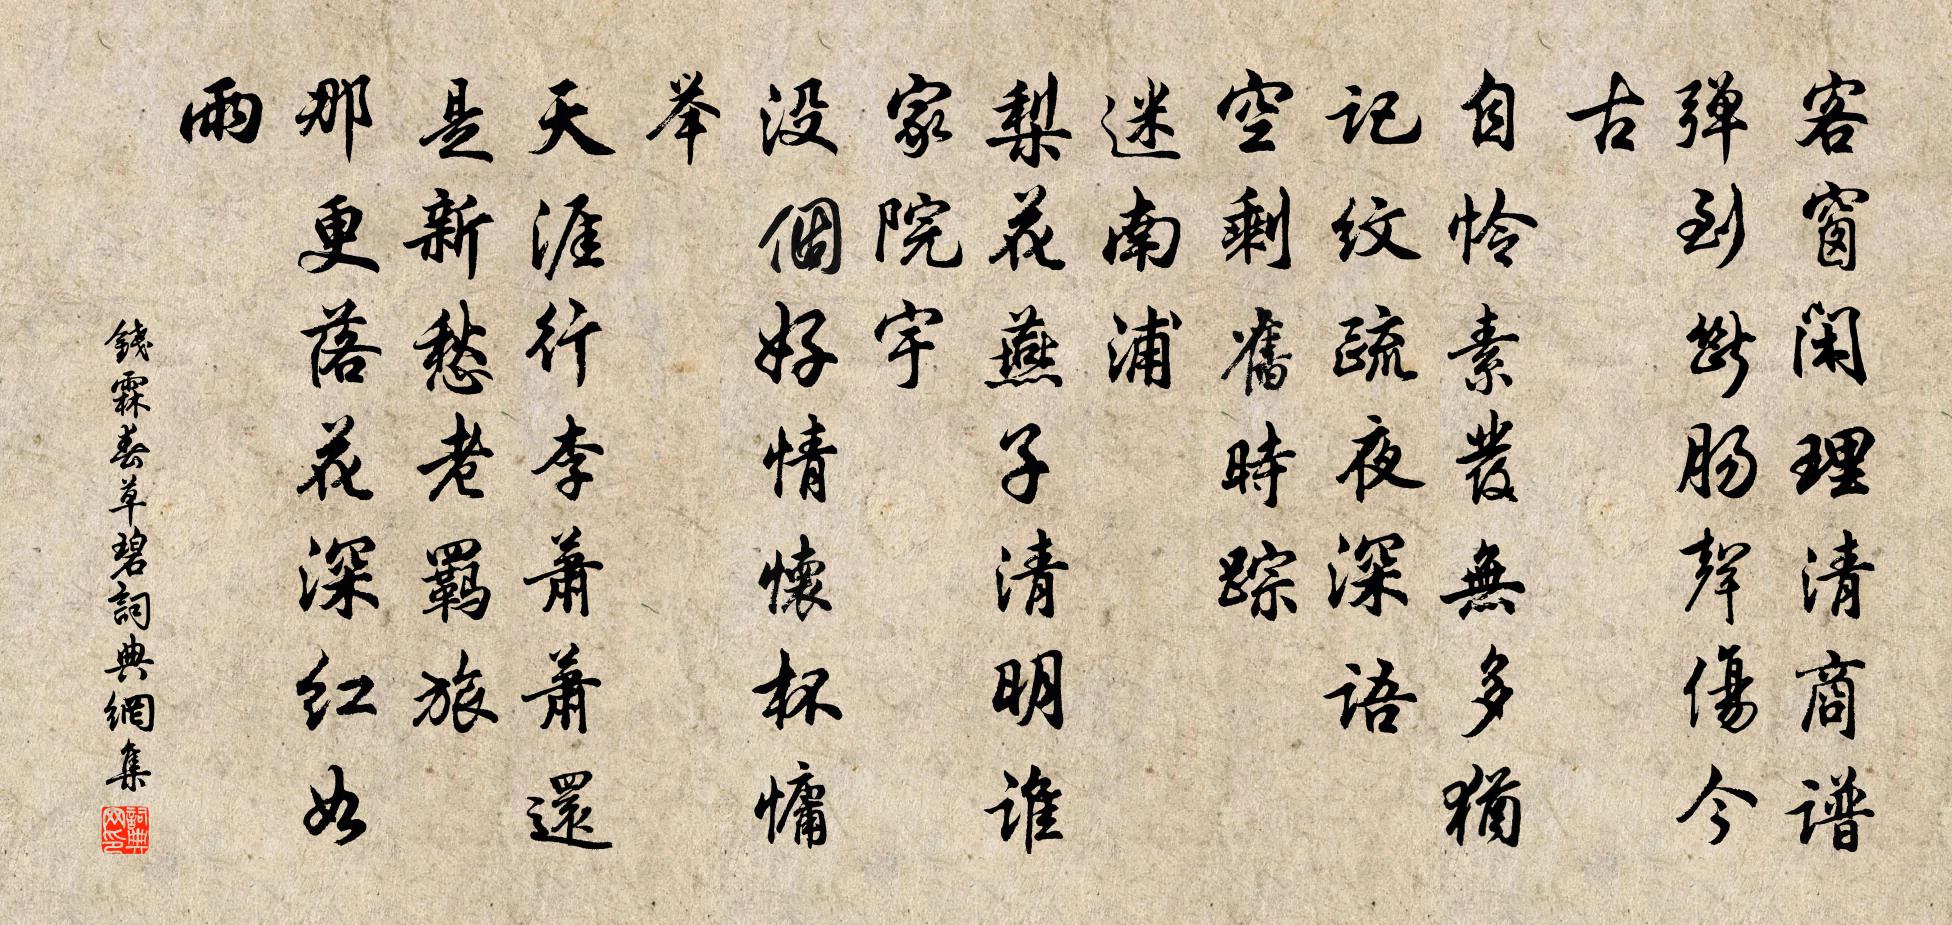 客窗闲理清商谱
弹到断肠声傷今
古
自怜素發無多猶
記纹疏夜深语
空剩舊時踪
迷南浦
梨花燕子清明谁
家院宇
没個好情懷杯慵
举
天涯行李萧萧還
是新愁老羁旅
那更落花深红如
雨
錢霖春草碧詞典網集
詞典網印